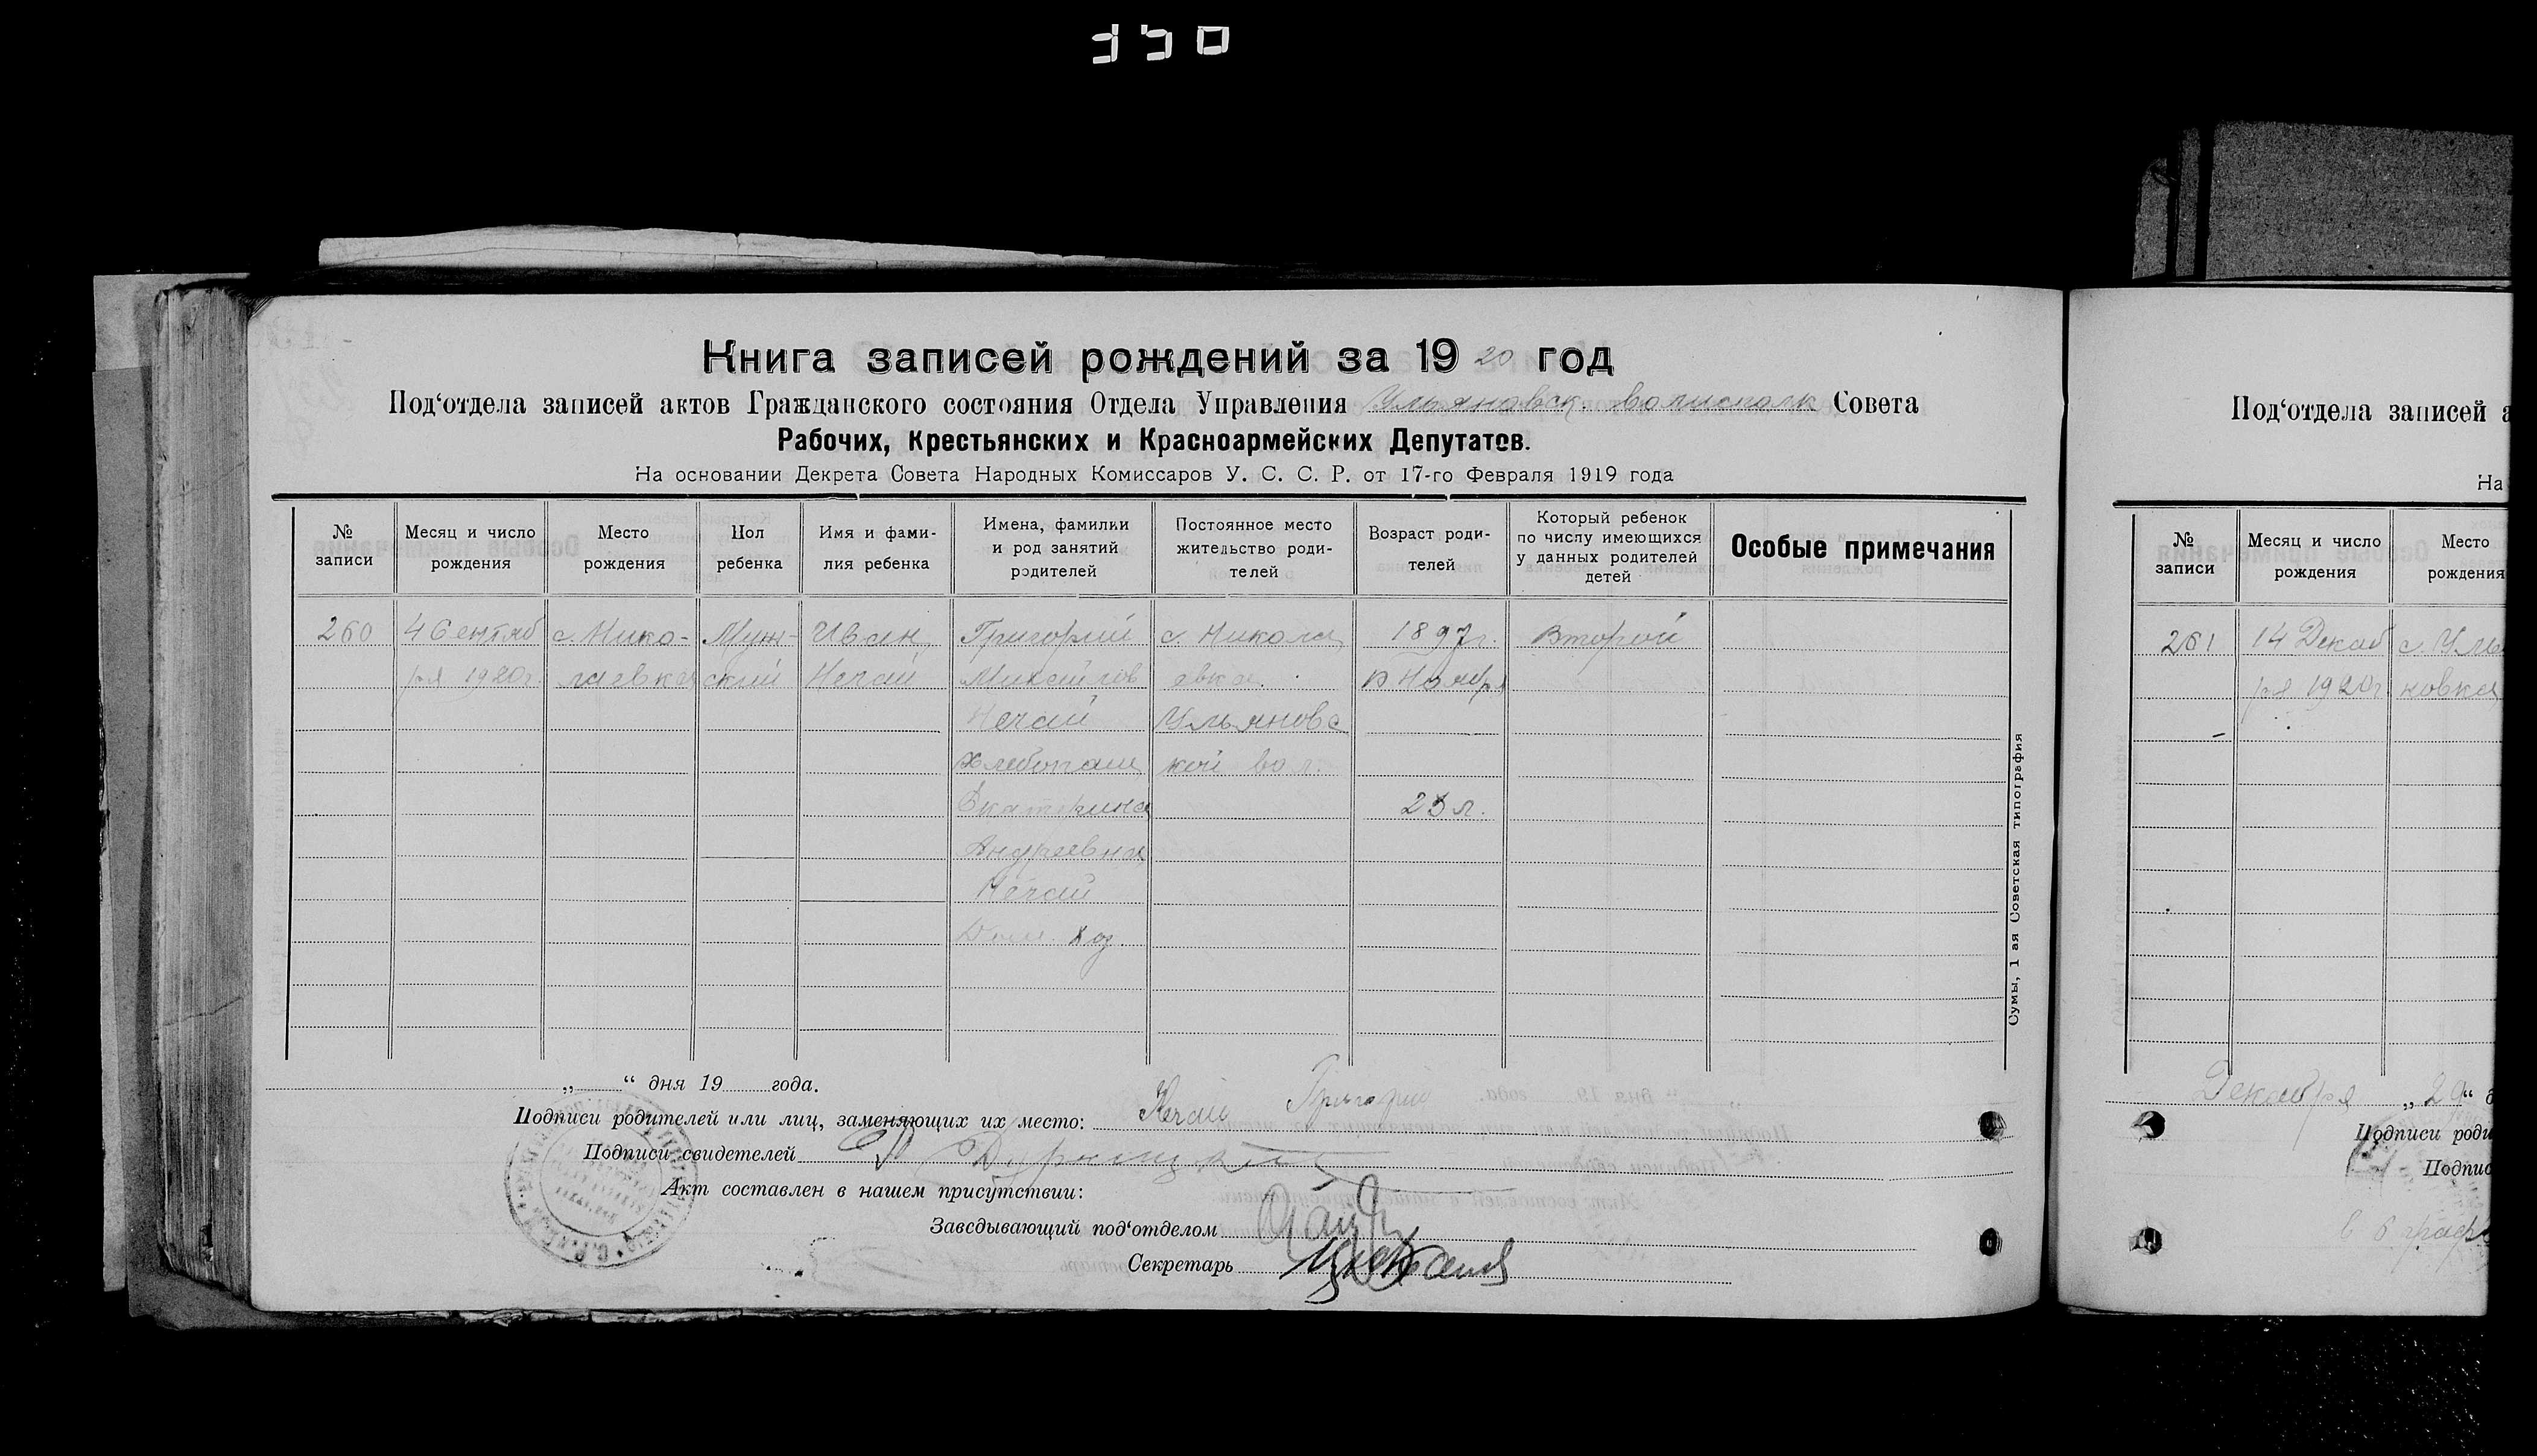 350
Книга записей рождений за 1920 год
Под‘отдела записей актов Гражданского состояния Отдела Управления Ульяновск. волисполк Совета
Рабочих, Крестьянских и Красноармейских Депутатов.
На основании Декрета Совета Народных Комиссаров У. С. С. Р. от 17-го Февраля 1919 года
№ записи
Месяц и число рождения
Место рождения
Пол ребенка
Имя и фами-
лия ребенка
Имена, фамилии
и род занятий
родителей
Постоянное место
жительство роди-
телей
Возраст роди-
телей
Который ребенок
по числу имеющихся
у данных родителей
детей
Особые примечания
260 4 Сентяб с. Нико- Муж- Иван Григорий с. Никола 1897 г. Второй
ря 1920 г. лаевка ский Нечай Михайлов евка. В Ноябр
Нечай Ульяновс
Хлебопаш кой вол.
Екатерина 23 л.
Андреевна
Нечай
Дом. хоз.
Сумы, 1 ая Советская типография
„ “ дня 19 года.
Подписи родителей или лиц, заменяющих их место: Нечай Григорий
Подписи свидетелей
Акт составлен в нашем присутствии:
Заведывающий под‘отделом
Секретарь
Под‘отдела записей а
На
№ записи
Месяц и число рождения
Место рождения
261 14 Декаб с. Улья
ря 1920 г. новка
Декабря „29“ д
Подписи роди
Подпис
в 6 графе